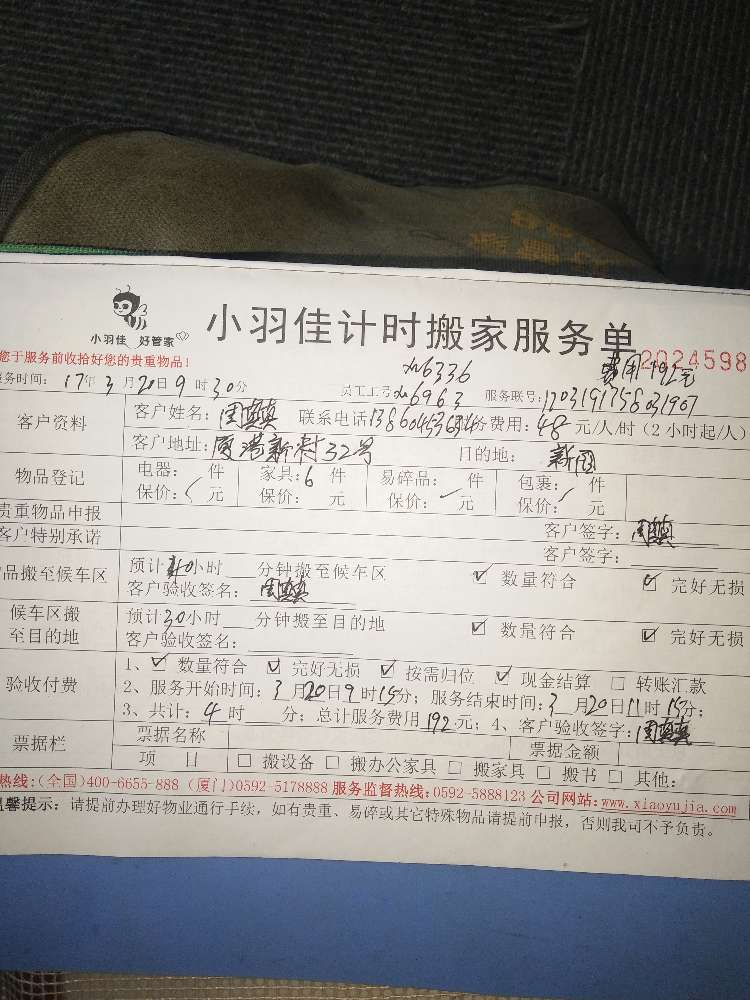 小羽佳 好管家
小羽佳计时搬家服务单
2024598
费用192元
您于服务前收拾好您的贵重物品!
xm6336
务时间: 17年3月20日9时30分 员工工号xm6963 服务联号:
客户资料 客户姓名: 联系电话 务费用:48元/人/时(2小时起/人)
客户地址:厦港新村32号 目的地:
物品登记 电器: 件 家具:6件 易碎品: 件 包裹: 件
保价: 元 保价: 元 保价: 元 保价: 元
贵重物品申报 客户签字:
客户特别承诺 客户签字:
品搬至候车区 预计 小时 分钟搬至候车区 ☑ 数量符合 ☑ 完好无损
客户验收签名:
候车区搬至目的地 预计30小时 分钟搬至目的地 ☑ 数量符合 ☑ 完好无损
客户验收签名:
验收付费 1、☑ 数量符合 ☑ 完好无损 ☑ 按需归位 ☑ 现金结算 □ 转账汇款
2、服务开始时间:3月20日9时15分; 服务结束时间:3月20日11时15分;
3、共计:4时 分; 总计服务费用192元; 4、客户验收签字:
票据栏 票据名称 票据金额
项 目 □ 搬设备 □ 搬办公家具 □ 搬家具 □ 搬书 □ 其他:
热线:(全国)400-6655-888 (厦门)0592-5178888 服务监督热线:0592-5888123 公司网站:www.xiaoyujia.com
温馨提示: 请提前办理好物业通行手续, 如有贵重、易碎或其它特殊物品请提前申报, 否则我司不予负责。